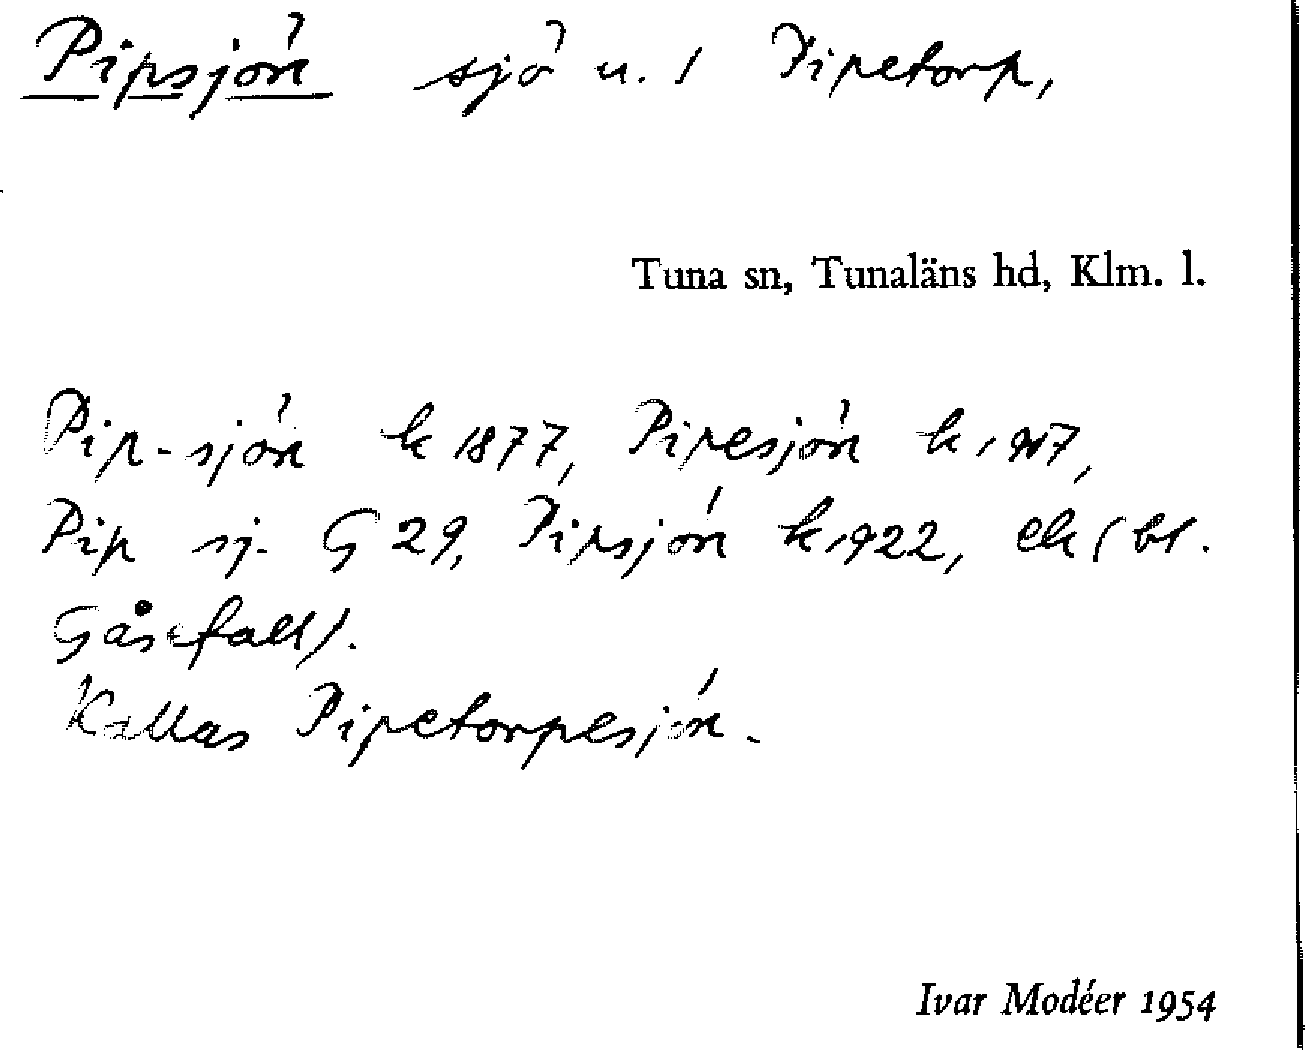 Pipsjön sjö u. / Pipetorp,
Tuna sn, Tunaläns hd, Klm. l.
Pip-sjön k 1877, Pipesjön k 1917,
Pip sj. G 29, Pipsjön k 1922, ek (bl.
Gåsefall).
Kallas Pipetorpesjön.
Ivar Modéer 1954